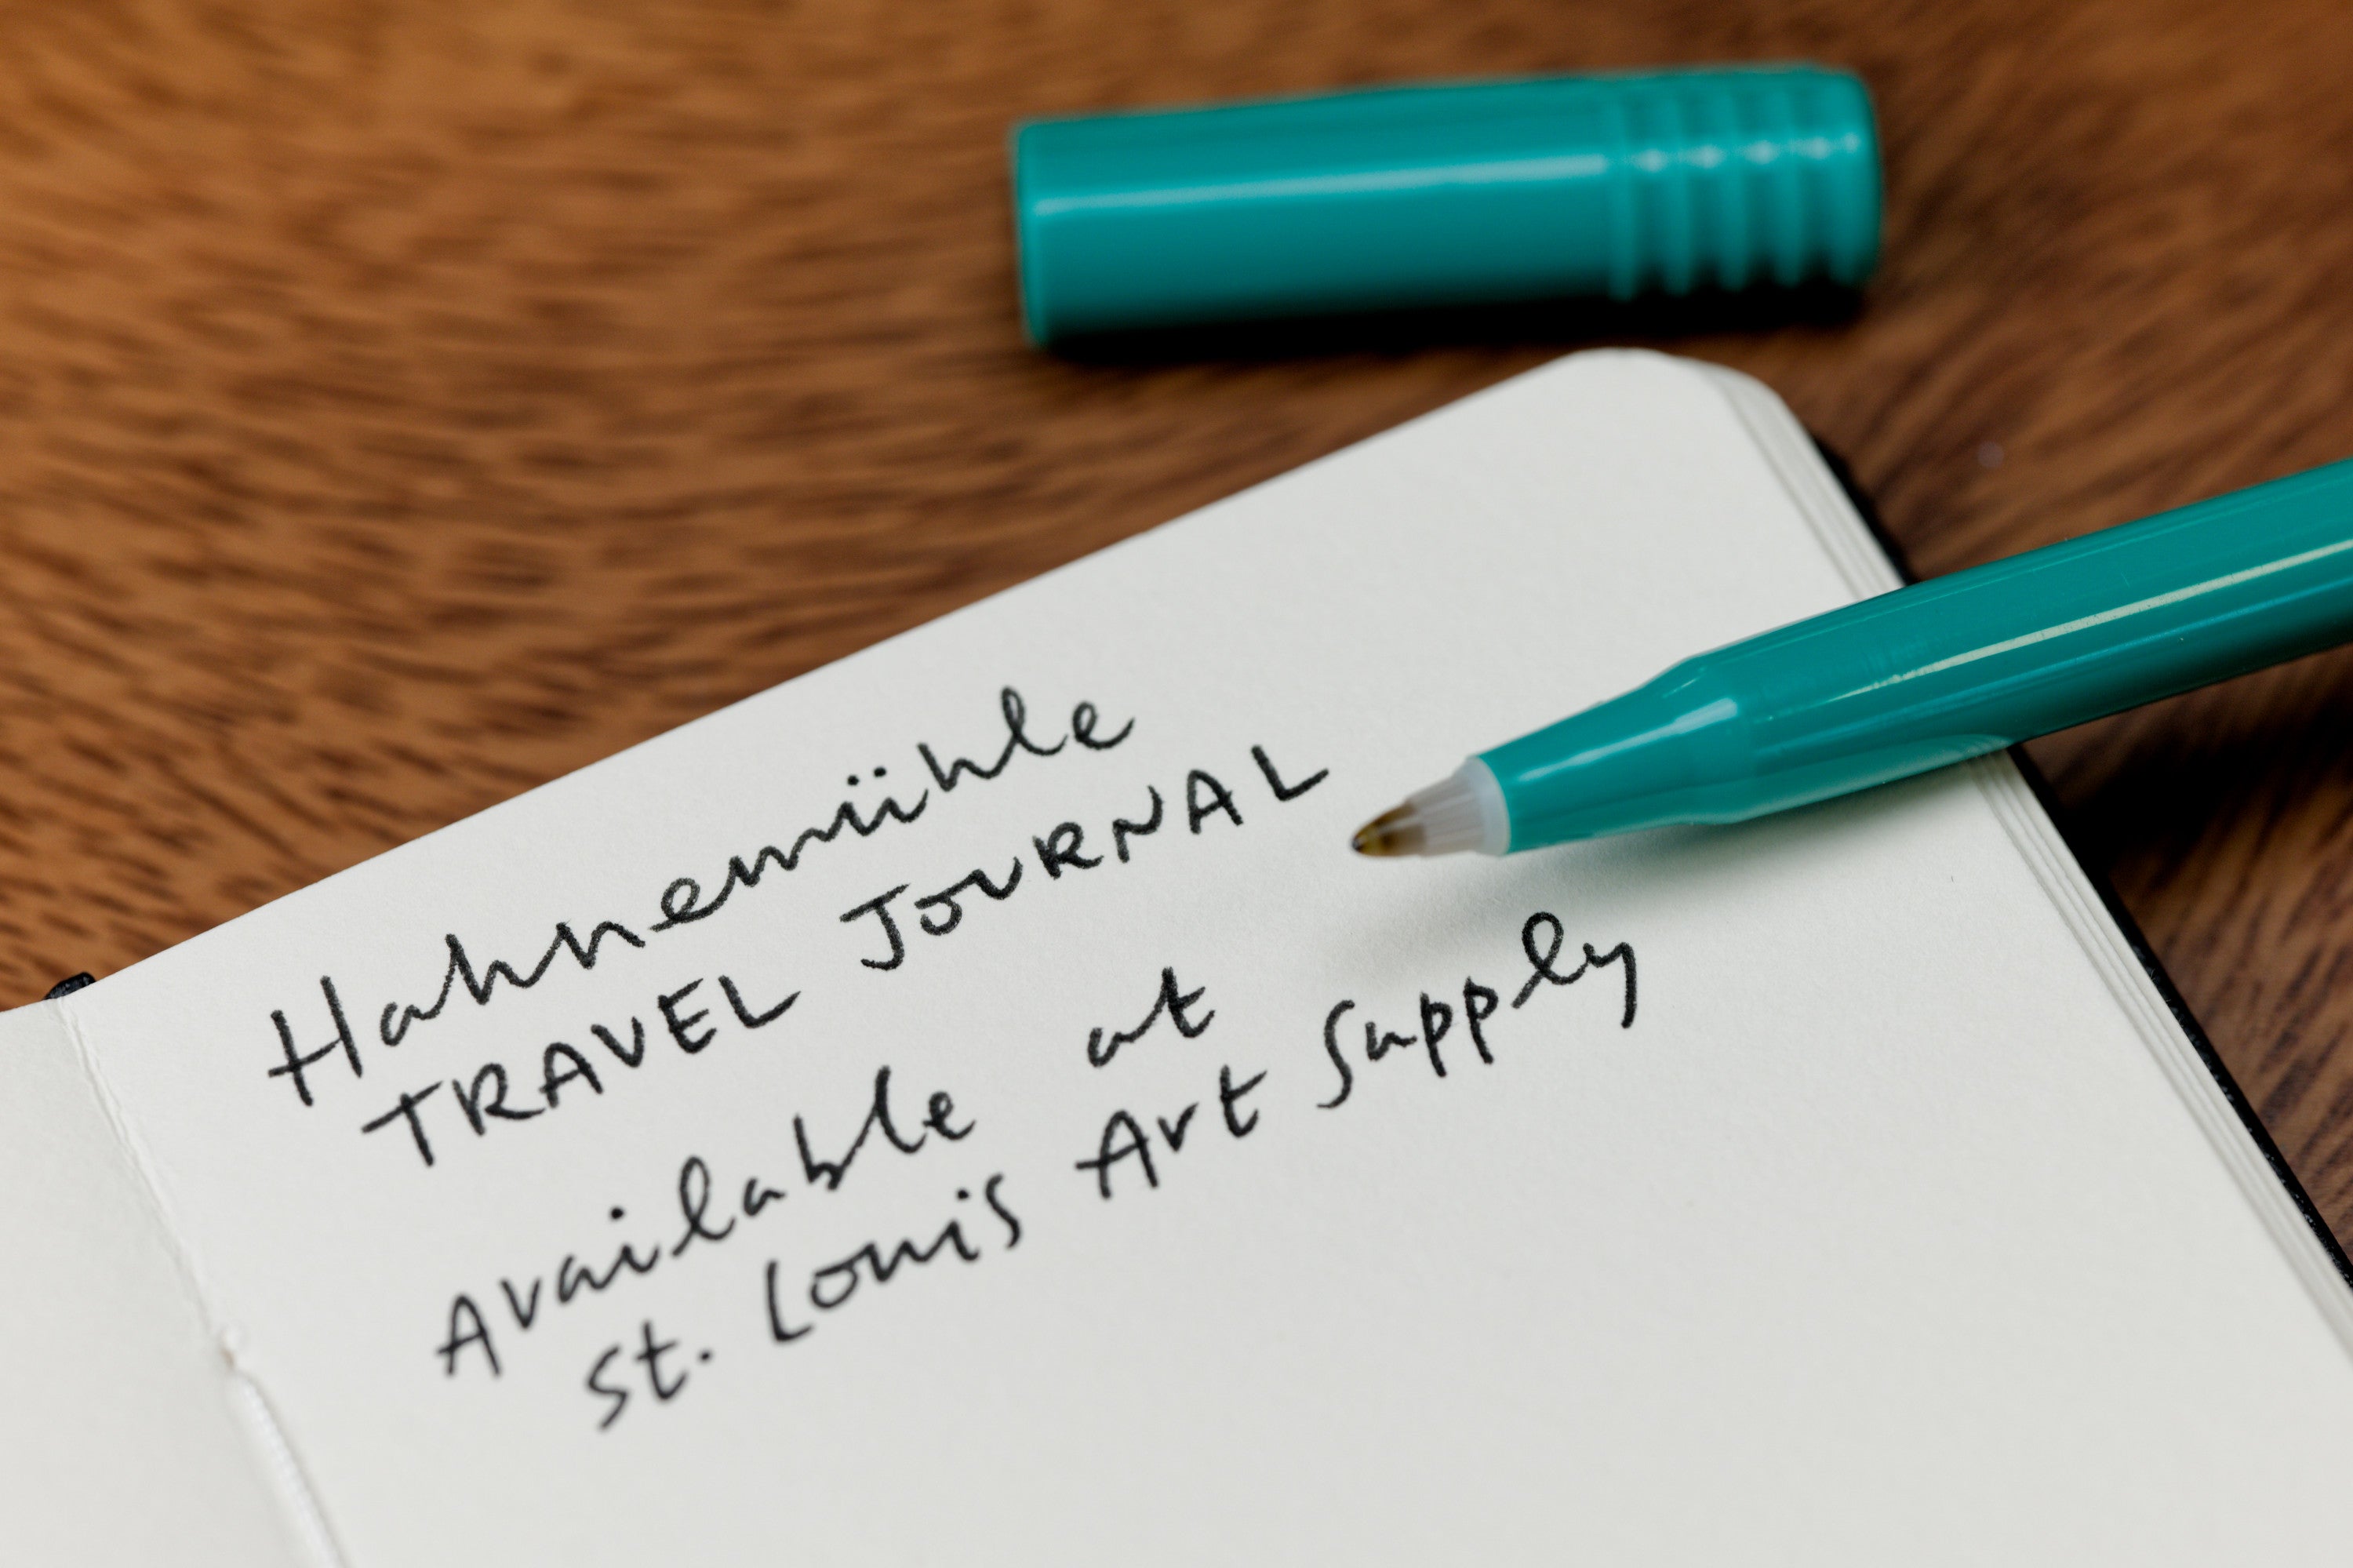 Hahnemühle
TRAVEL JOURNAL
Available at
St. Louis Art Supply